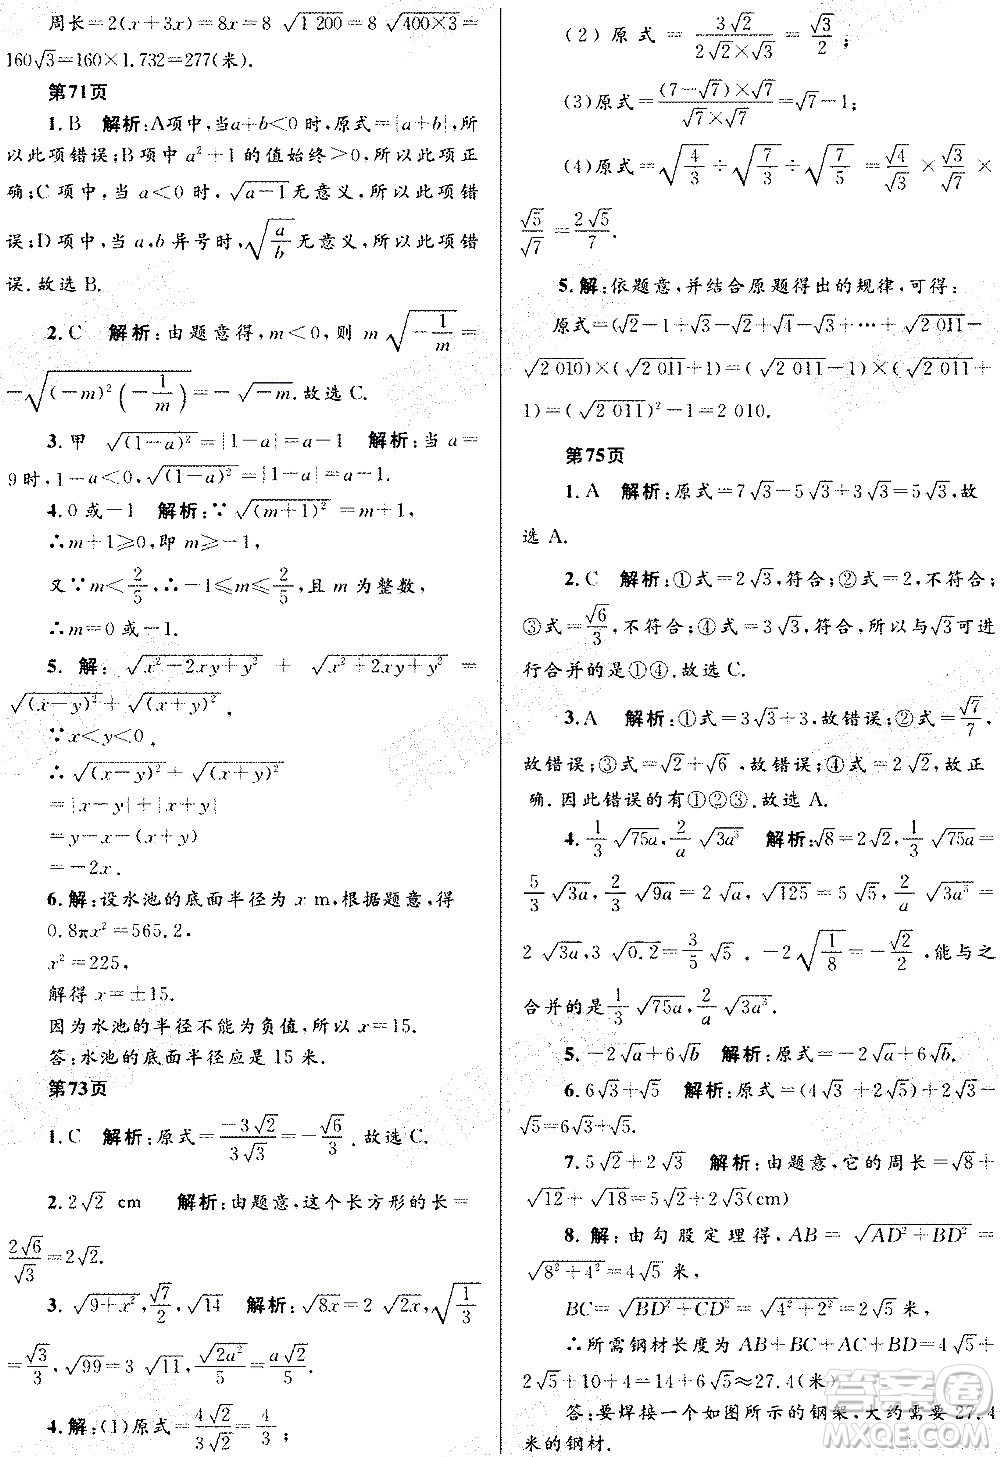 周长=2(x+3x)=8x=8√1 200=8√400×3=
160√3=160×1.732=277(米).
第71页
1.B 解析:A项中,当a+b<0时,原式=|a+b|,所
以此项错误;B项中a²+1的值始终>0,此项正
确;C项中,当a<0时,√a-1无意义,所以此项错
误;D项中,当a,b异号时,√(a/b)无意义,所以此项错
误.故选B.
2.C 解析:由题意得,m<0,则m√(-1/m)=
-√((-m)²(-1/m))=-√-m.故选C.
3.甲 √(1-a)²=|1-a|=a-1 解析:当a=
9时,1-a<0,√(1-a)²=|1-a|=a-1.
4.0或-1 解析:∵√(m+1)²=m+1,
∴m+1≥0,即m≥-1.
又∵m<2/5,∴-1≤m≤2/5,且m为整数,
∴m=0或-1.
5.解:√x²-2xy+y²+√x²+2xy+y²=
√(x-y)²+√(x+y)².
∵x<y<0,
∴√(x-y)²+√(x+y)²
=|x-y|+|x+y|
=y-x-(x+y)
=-2x.
6.解:设水池的底面半径为x m,根据题意,得
0.8πx²=565.2.
x²=225,
解得x=±15.
因为水池的半径不能为负值,所以x=15.
答:水池的底面半径应是15米.
第73页
1.C 解析:原式=-3√2/3√3=-√6/3.故选C.
2.2√2 cm 解析:由题意,这个长方形的长=
2√6/√3=2√2.
3.√9+x²,√7/2,√14 解析:√8x=2√2x,√(1/3)
=√3/3,√99=3√11,√2a²/√6a=√3a/3.
4.解:(1)原式=4√2/3√2=4/3;
(2)原式=3√2×√3/2√2×√3=√3/2;
(3)原式=(7-√7)×√7/√7×√7=√7-1;
(4)原式=√(4/3)÷√(7/3)÷√(7/5)=√4/√3×√3/√7×
√5/√7=2√5/7.
5.解:依题意,并结合原题得出的规律,可得:
原式=(√2-1+√3-√2+√4-√3+…+√2 011-
√2 010)×(√2 011+1)=(√2 011-1)×(√2 011+
1)=(√2 011)²-1=2 010.
第75页
1.A 解析:原式=7√3-5√3+3√3=5√3,故
选A.
2.C 解析:①式=2√3,符合;②式=2,不符合;
③式=√6/3,不符合;④式=3√3,符合,所以与√3可进
行合并的是①④.故选C.
3.A 解析:①式=3√3+3,故错误;②式=√7/7,
故错误;③式=√2+√6,故错误;④式=2√2,故正
确.因此错误的有①②③.故选A.
4.1/3√75a,2/a√3a³ 解析:√8=2√2,1/3√75a=
5/3√3a,2/3√9a=2√a,√125=5√5,2/a√3a³=
2√3a,3√0.2=3/5√5,-2√(1/8)=-√2/2,能与之
合并的是1/3√75a,2/a√3a³.
5.-2√a+6√b 解析:原式=√a-3√a+6√b.
6.6√3+√5 解析:原式=(4√3+2√5)+2√3
-√5=6√3+√5.
7.5√2+2√3 解析:由题意,它的周长=√8+
√12+√18=5√2+2√3(cm)
8.解:由勾股定理得,AB=√AD²+BD²=
√8²+4²=4√5米,
BC=√BD²+CD²=√4²+2²=2√5米,
∴所需钢材长度为AB+BC+AC+BD=4√5+
2√5+10+4=14+6√5≈27.4(米)
答:要焊接一个如图所示的钢架,大约需要27.4
米的钢材.
答案圈
MXQE.COM